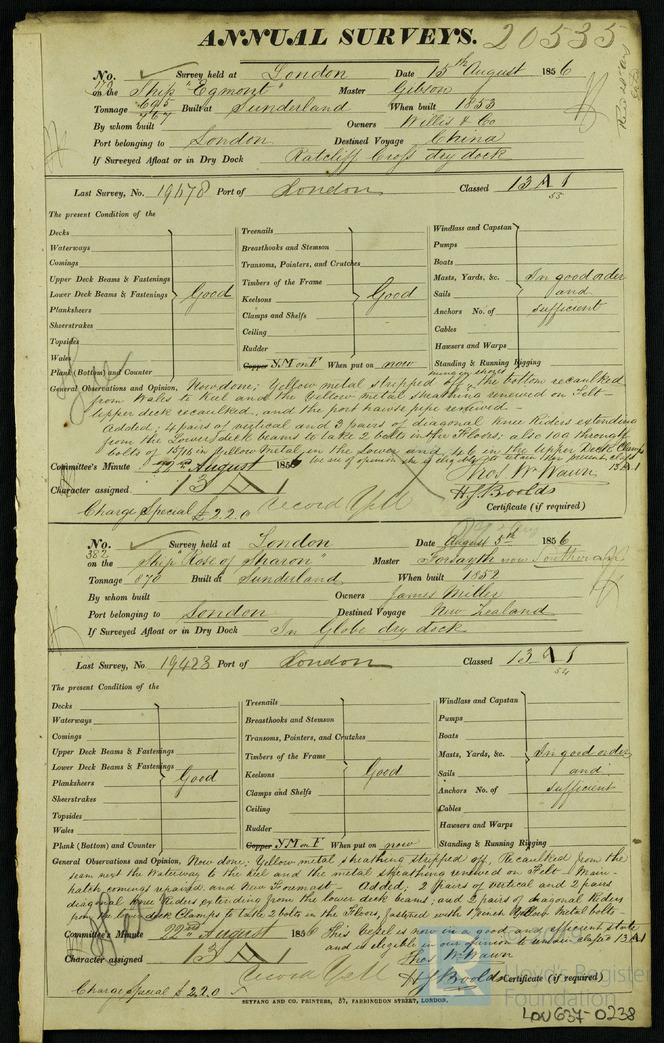 ANNUAL SURVEYS. 20535
No. Survey held at London Date 15th August 1856
on the Ship "Egmont" Master Gibson
Tonnage 695 Built at Sunderland When built 1853
By whom built Owners Willis & Co
Port belonging to London Destined Voyage China
If Surveyed Afloat or in Dry Dock Ratcliff Cross dry dock
Last Survey, No. 19478 Port of London Classed 13 A 1
55
The present Condition of the
Decks
Waterways
Comings
Upper Deck Beams & Fastenings
Lower Deck Beams & Fastenings
Planksheers
Sheerstrakes
Topsides
Wales
Plank (Bottom) and Counter
Good
Treenails
Breasthooks and Stemson
Transoms, Pointers, and Crutches
Timbers of the Frame
Keelsons
Clamps and Shelfs
Ceiling
Rudder
Copper Y.M on F When put on now
Good
Windlass and Capstan
Pumps
Boats
Masts, Yards, &c.
Sails
Anchors No. of
Cables
Hawsers and Warps
Standing & Running Rigging
In good order
and
sufficient
General Observations and Opinion, Now done; Yellow metal stripped off, the bottom recaulked
from Wales to Keel and the Yellow metal sheathing renewed on Felt -
Upper deck recaulked, and the port hawse pipe renewed -
Added; 4 pairs of vertical and 3 pairs of diagonal Knee Riders extending
from the Lower deck beams to take 2 bolts in the Floors; also 100 through
bolts of 15/16 in Yellow Metal in the Lower and 46 in the Upper Deck Clamps
Committee's Minute 22nd August 1856
Thos W Wawn
Character assigned 13 A 1
H J Boolds
Charge Special £2.2.0 Record YM Certificate (if required)
No. Survey held at London Date August 5th 1856
382
on the Ship "Rose of Sharon" Master Forsayth now
Tonnage 870 Built at Sunderland When built 1852
By whom built Owners James Miller
Port belonging to London Destined Voyage New Zealand
If Surveyed Afloat or in Dry Dock In Globe dry dock
Last Survey, No 19423 Port of London Classed 13 A 1
54
The present Condition of the
Decks
Waterways
Comings
Upper Deck Beams & Fastenings
Lower Deck Beams & Fastenings
Planksheers
Sheerstrakes
Topsides
Wales
Plank (Bottom) and Counter
Good
Treenails
Breasthooks and Stemson
Transoms, Pointers, and Crutches
Timbers of the Frame
Keelsons
Clamps and Shelfs
Ceiling
Rudder
Copper Y.M on F When put on now
Good
Windlass and Capstan
Pumps
Boats
Masts, Yards, &c.
Sails
Anchors No. of
Cables
Hawsers and Warps
Standing & Running Rigging
In good order
and
sufficient
General Observations and Opinion, Now done; Yellow metal sheathing stripped off, Recaulked from the
seam next the Waterway to the Keel and the metal sheathing renewed on Felt - Main-
hatch comings repaired, and New Foremast - Added; 2 pairs of vertical and 2 pairs
diagonal Knee Riders extending from the lower deck beams; and 2 pairs of diagonal Riders
from the lower deck Clamps to take 2 bolts in the Floors, fastened with 1 1/8 inch Yellow Metal bolts -
This Vessel is now in a good and efficient state
Committee's Minute 22nd August 1856
and is eligible in our opinion to remain classed 13 A 1
Thos W Wawn
Character assigned 13 A 1
Record YM
H J Boolds Certificate (if required)
Charge Special £2.2.0
SEYFANG AND CO. PRINTERS, 57, FARRINGDON STREET, LONDON.
Lloyd's Register
Foundation
LON 637-0238